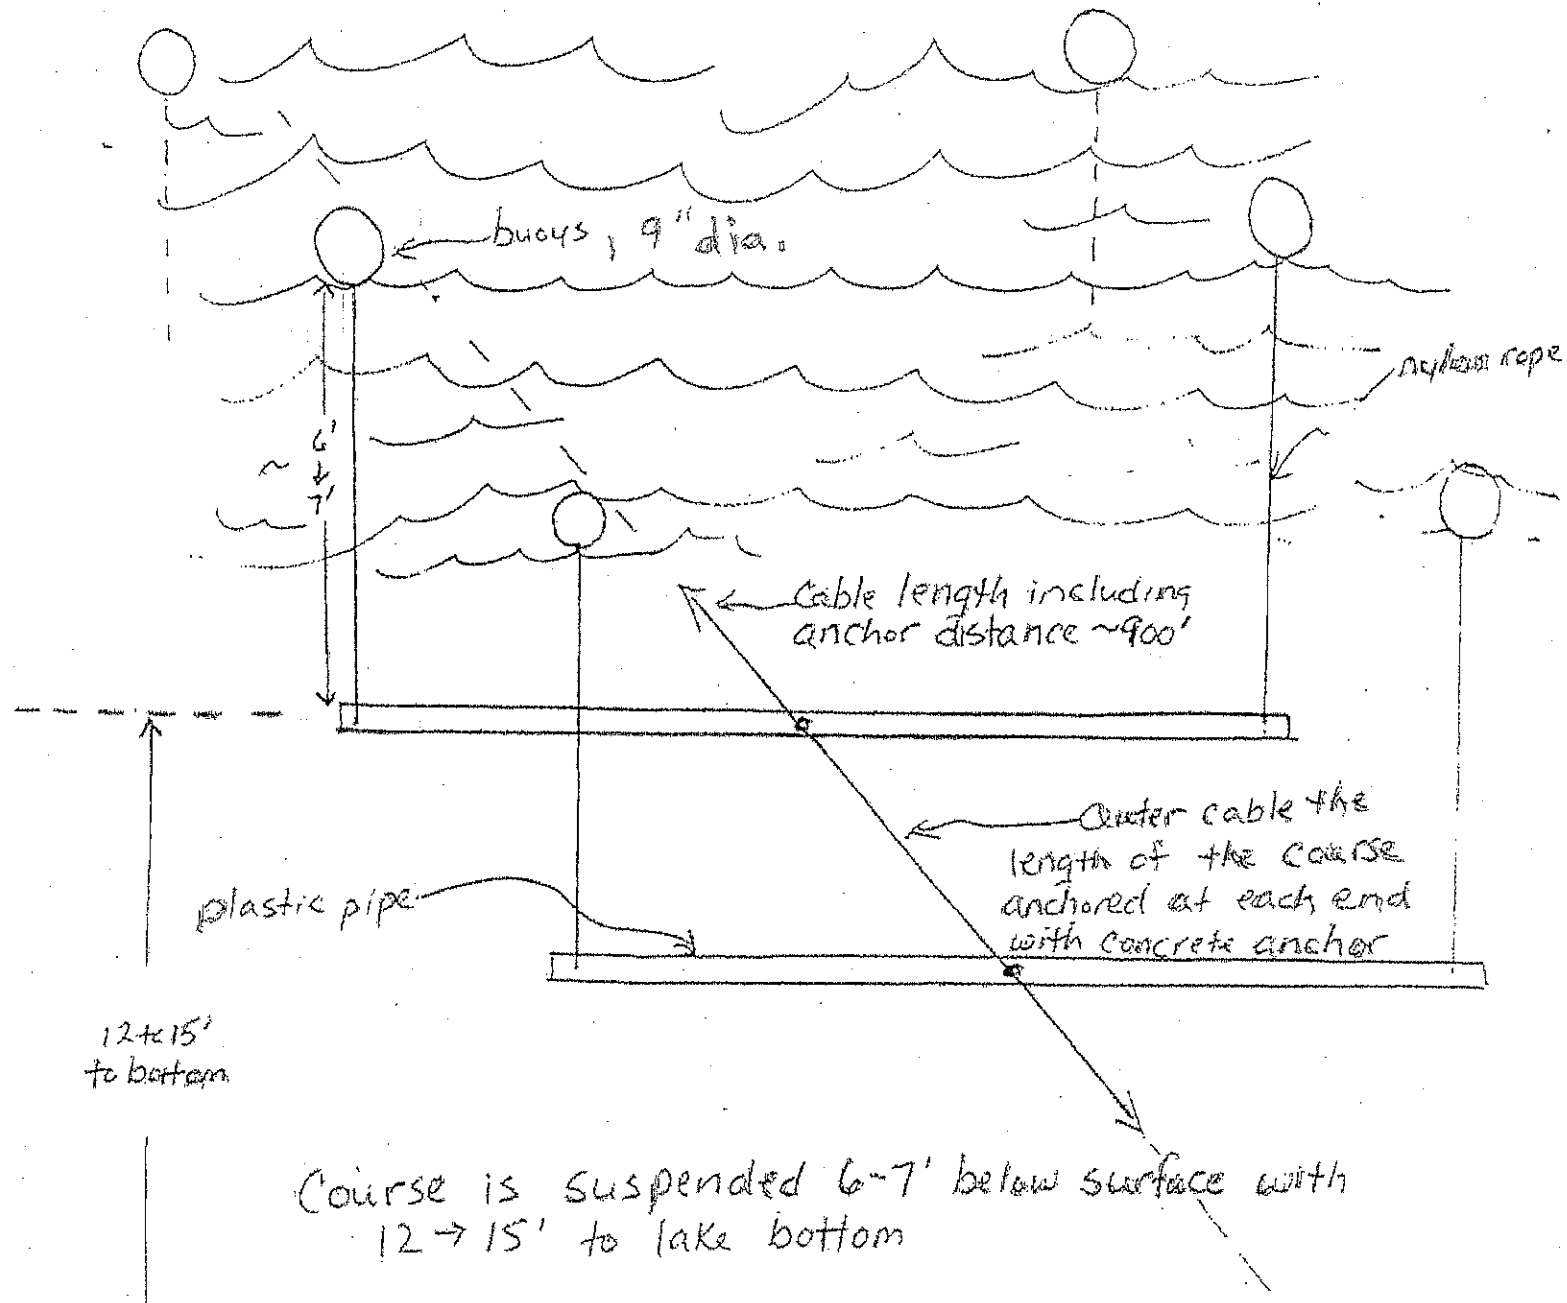 buoys, 9" dia.
nylon rope
~ 6'
↓
7'
Cable length including
anchor distance ~900'
Outer cable the
length of the course
anchored at each end
with concrete anchor
plastic pipe
12 to 15'
to bottom
Course is suspended 6-7' below surface with
12 → 15' to lake bottom